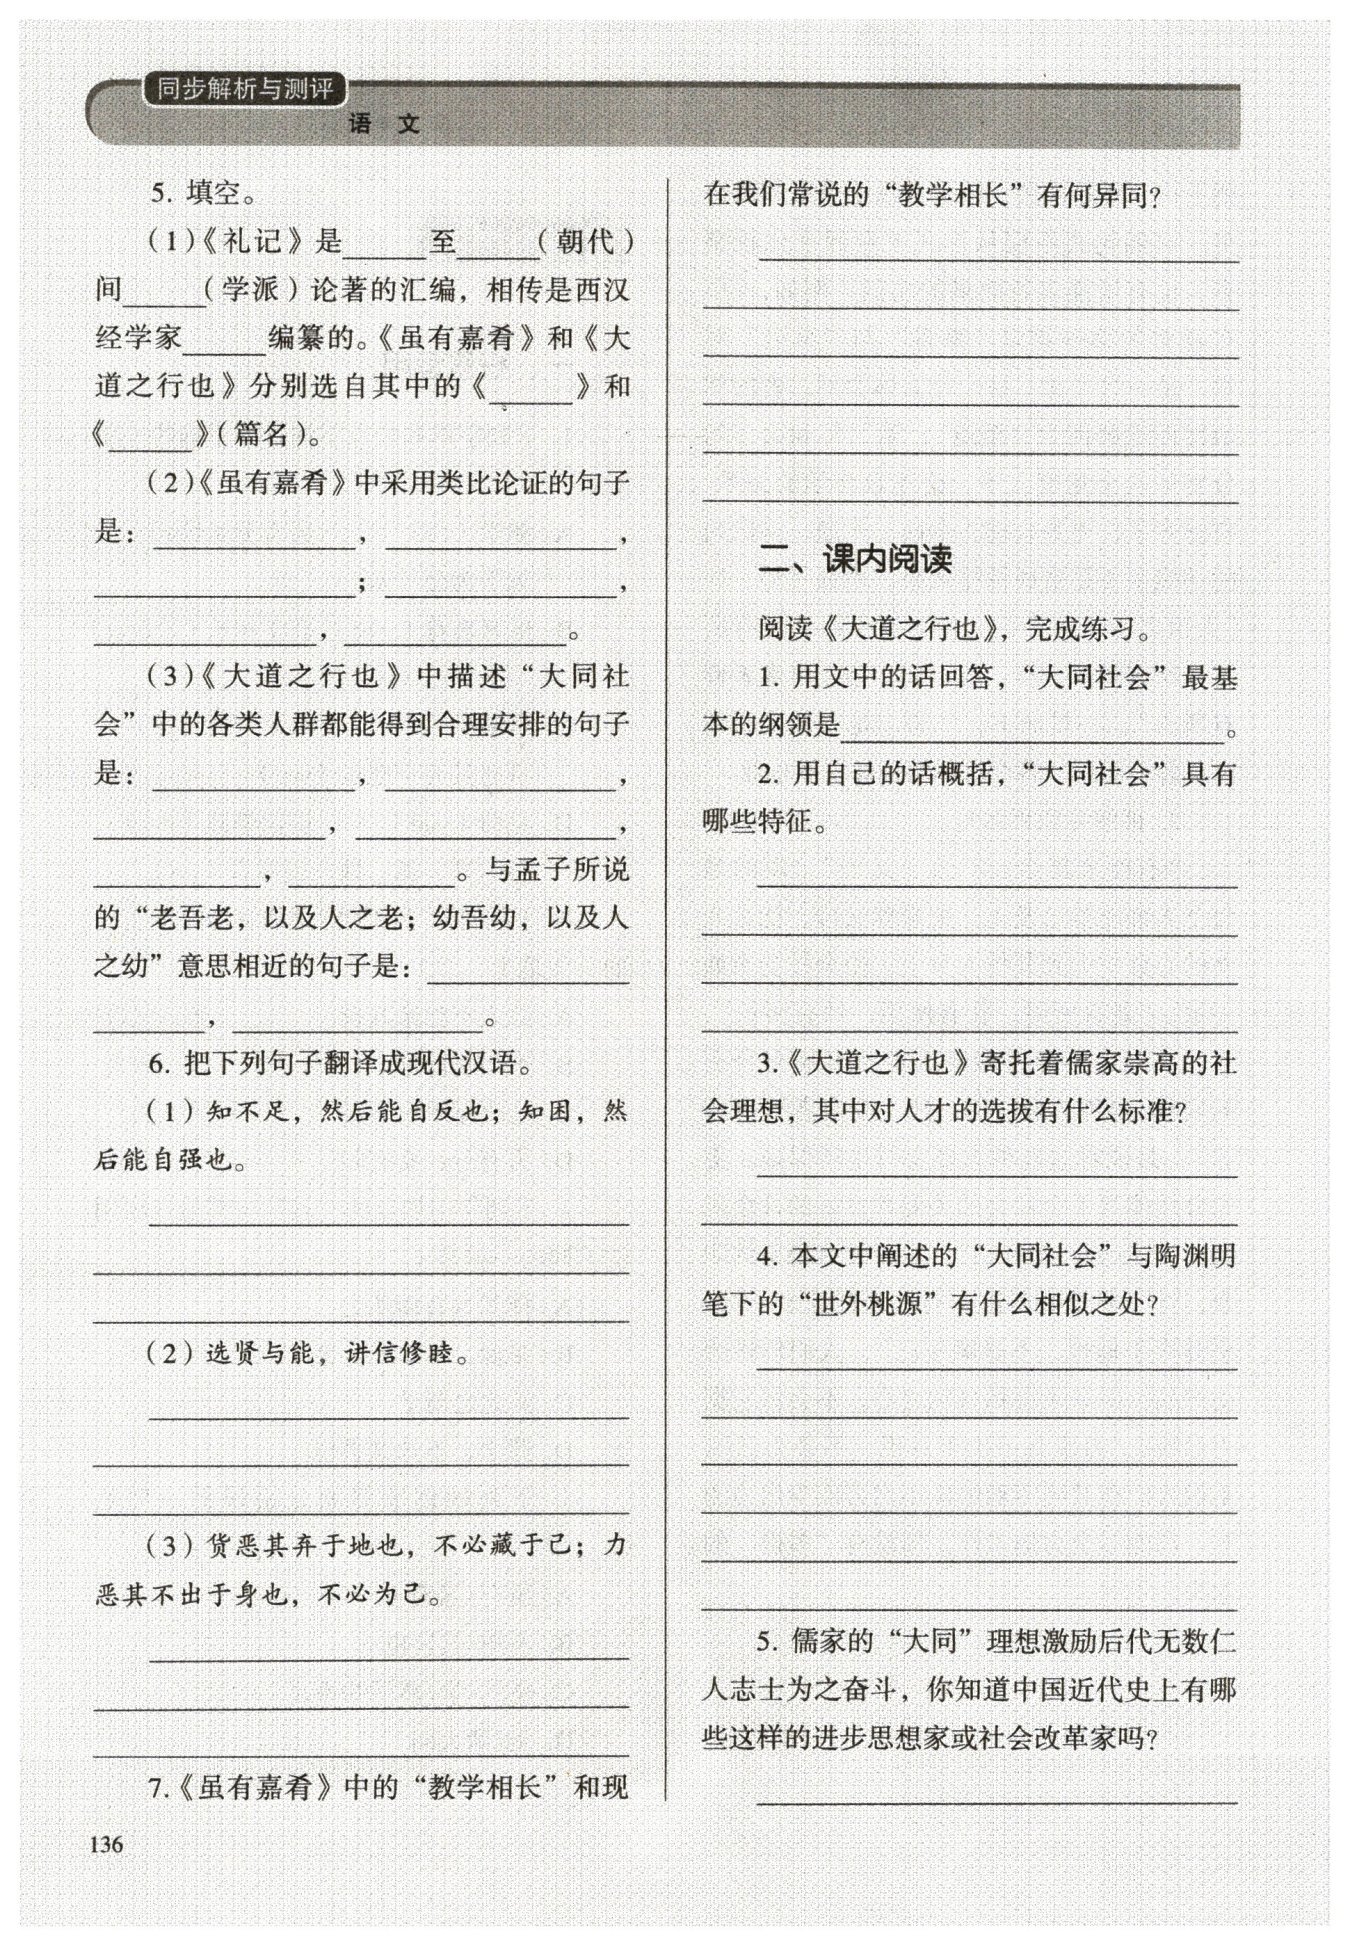 同步解析与测评
语 文
5. 填空。
(1)《礼记》是______至______(朝代)
间______(学派)论著的汇编，相传是西汉
经学家______编纂的。《虽有嘉肴》和《大
道之行也》分别选自其中的《______》和
《______》(篇名)。
(2)《虽有嘉肴》中采用类比论证的句子
是：______，______，
______；______，
______，______。
(3)《大道之行也》中描述“大同社
会”中的各类人群都能得到合理安排的句子
是：______，______，
______，______，
______，______。与孟子所说
的“老吾老，以及人之老；幼吾幼，以及人
之幼”意思相近的句子是：______
______，______。
6. 把下列句子翻译成现代汉语。
(1) 知不足，然后能自反也；知困，然
后能自强也。
(2) 选贤与能，讲信修睦。
(3) 货恶其弃于地也，不必藏于己；力
恶其不出于身也，不必为己。
7.《虽有嘉肴》中的“教学相长”和现
136
在我们常说的“教学相长”有何异同？
二、课内阅读
阅读《大道之行也》，完成练习。
1. 用文中的话回答，“大同社会”最基
本的纲领是______。
2. 用自己的话概括，“大同社会”具有
哪些特征。
3.《大道之行也》寄托着儒家崇高的社
会理想，其中对人才的选拔有什么标准？
4. 本文中阐述的“大同社会”与陶渊明
笔下的“世外桃源”有什么相似之处？
5. 儒家的“大同”理想激励后代无数仁
人志士为之奋斗，你知道中国近代史上有哪
些这样的进步思想家或社会改革家吗？